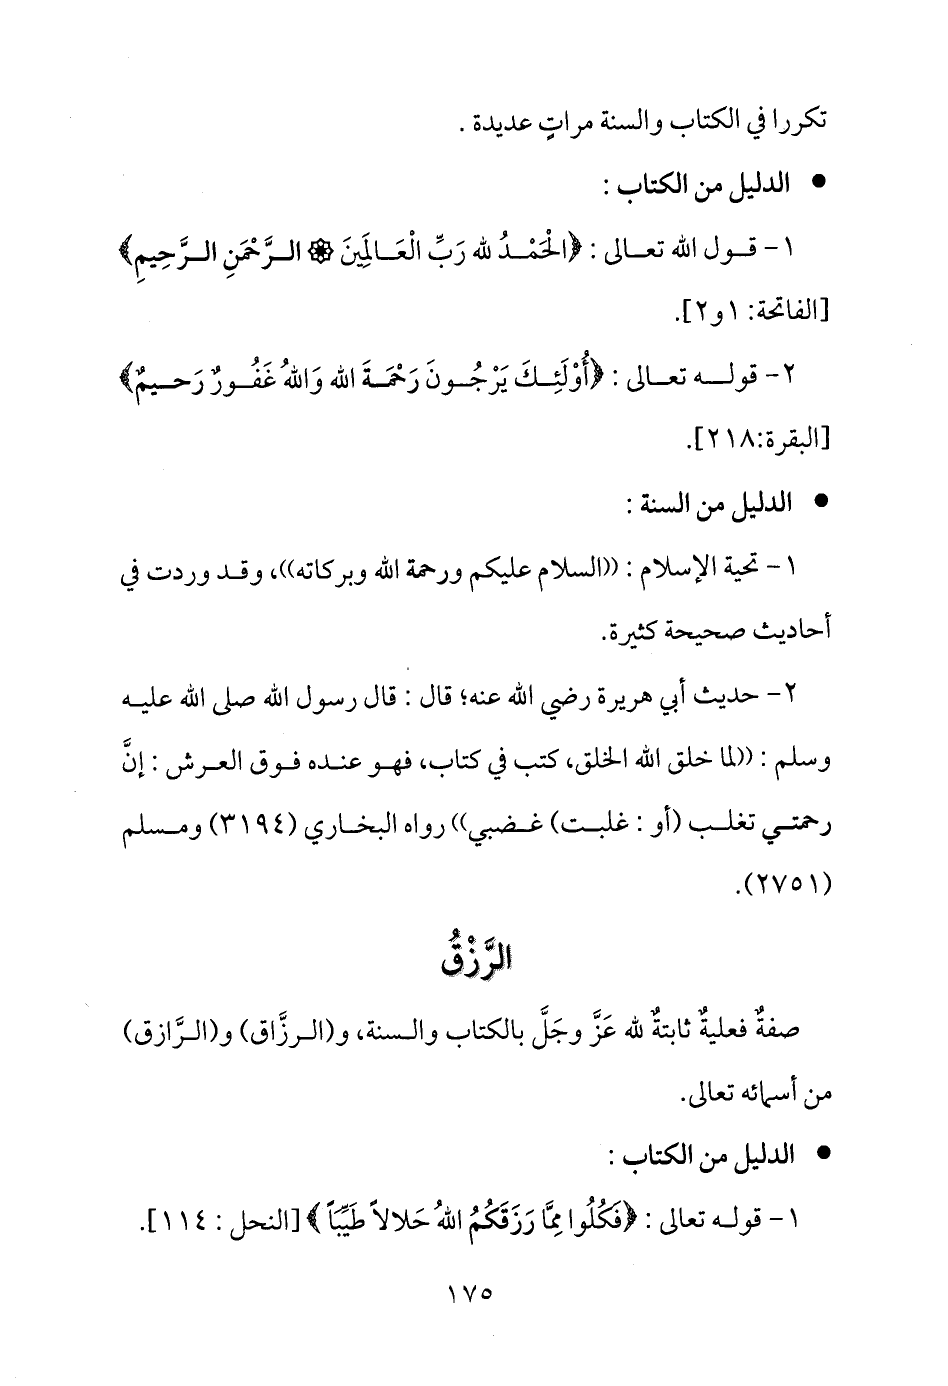 تكررا في الكتاب والسنة مراتٍ عديدة .
• الدليل من الكتاب :
١- قول الله تعالى : ﴿الْحَمْدُ لله رَبِّ الْعَالَمِينَ ۞ الرَّحْمَنِ الرَّحِيمِ﴾
[الفاتحة: ١و٢].
٢- قوله تعالى : ﴿أُوْلَئِكَ يَرْجُونَ رَحْمَةَ الله وَاللهُ غَفُورٌ رَحِيمٌ﴾
[البقرة:٢١٨].
• الدليل من السنة :
١- تحية الإسلام : ((السلام عليكم ورحمة الله وبركاته))، وقد وردت في
أحاديث صحيحة كثيرة.
٢- حديث أبي هريرة رضي الله عنه؛ قال : قال رسول الله صلى الله عليه
وسلم : ((لما خلق الله الخلق، كتب في كتاب، فهو عنده فوق العرش : إنَّ
رحمتي تغلب (أو : غلبت) غضبي)) رواه البخاري (٣١٩٤) ومسلم
(٢٧٥١).
الرَّزْقُ
صفةٌ فعليةٌ ثابتةٌ لله عَزَّ وجَلَّ بالكتاب والسنة، و(الرزَّاق) و(الرَّازق)
من أسمائه تعالى.
• الدليل من الكتاب :
١- قوله تعالى : ﴿فَكُلُوا مِمَّا رَزَقَكُمُ اللهُ حَلالاً طَيِّبَاً ﴾ [النحل : ١١٤].
١٧٥